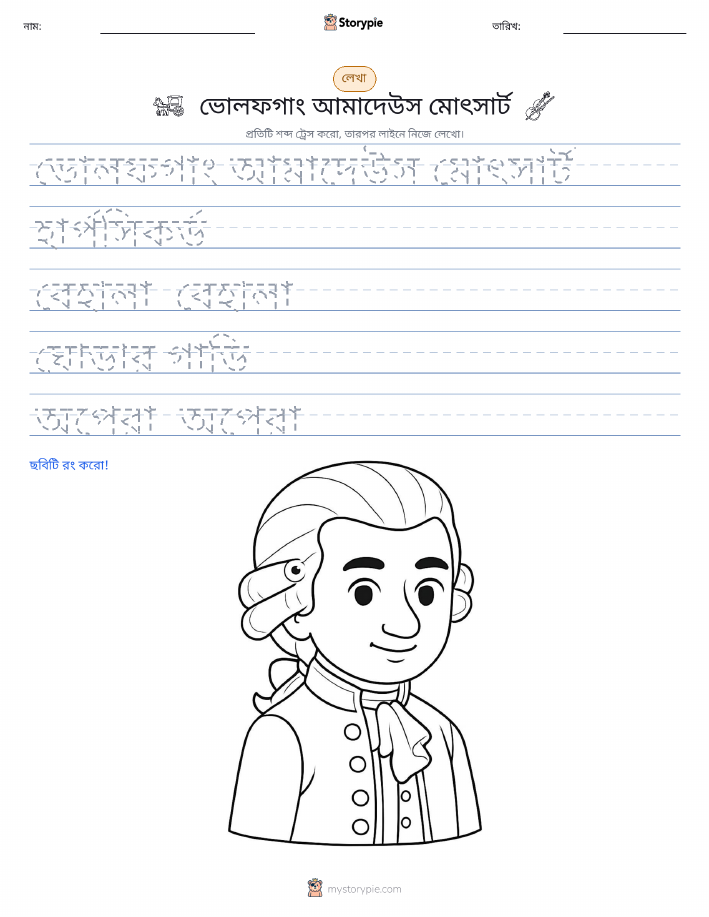 নাম:
Storypie
তারিখ:
লেখা
ভোলফগাং আমাদেউস মোৎসার্ট
প্রতিটি শব্দ ট্রেস করো, তারপর লাইনে নিজে লেখো।
ভোলফগাং আমাদেউস মোৎসার্ট
হার্পসিকর্ড
বেহালা বেহালা
ঘোড়ার গাড়ি
অপেরা অপেরা
ছবিটি রং করো!
mystorypie.com